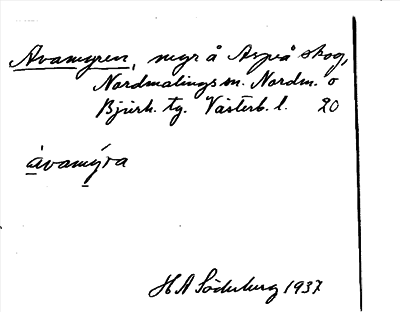 Avamyren, myr å Aspeå skog,
Nordmalings sn. Nordm. o
Bjurh. tg. Västerb. l. 20
àvamýra
H A Söderberg 1937